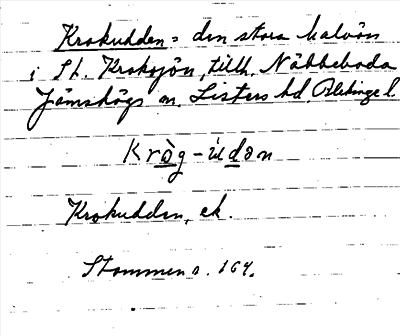 Krokudden = den stora halvön
i St. Kroksjön, tillh. Näbbeboda
Jämshögs sn. Listers hd. Blekinge l.
Kròg-údən
Krokudden, ek.
Stommen s. 164.